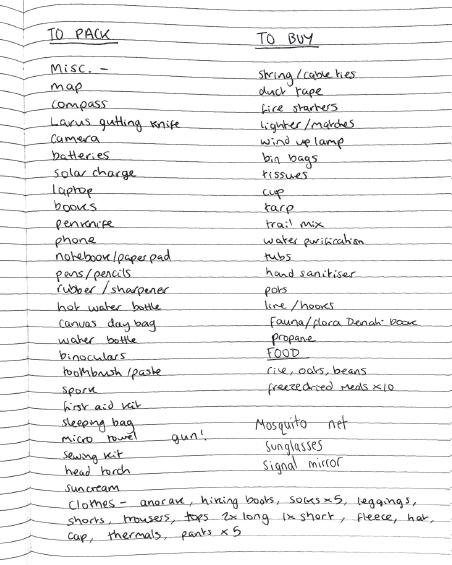 TO PACK
Misc. -
map
compass
gutting knife
camera
batteries
solar charge
laptop
books
penknife
phone
notebook/paper pad
pens/pencils
rubber/sharpener
hot water bottle
canvas day bag
water bottle
binoculars
toothbrush/paste
spork
first aid kit
sleeping bag
micro towel gun!
sewing kit
head torch
suncream
Clothes - anorak, hiking boots, socks x5, leggings,
shorts, trousers, tops 2x long 1x short, fleece, hat,
cap, thermals, pants x5
TO BUY
string/cable ties
duct tape
fire starters
lighter/matches
wind up lamp
bin bags
tissues
cup
tarp
trail mix
water purification
tubs
hand sanitiser
pots
line/hooks
Fauna/flora Denali book
propane
FOOD
rice, oats, beans
freezedried meals x10
Mosquito net
sunglasses
signal mirror